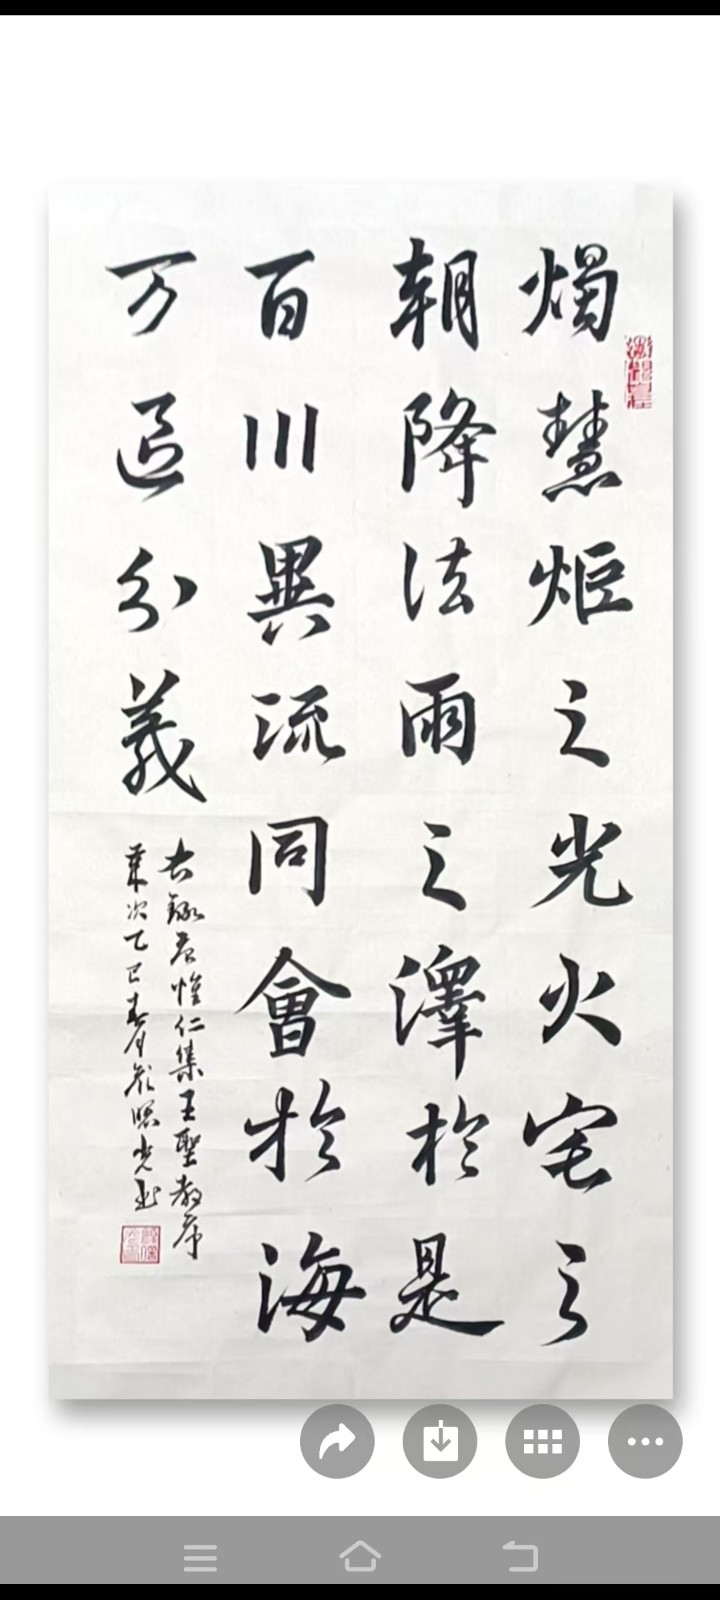 燭慧炬之光火宅之
朝降法雨之澤於是
百川異流同會於海
万區分義
右錄唐懷仁集王聖教序
歲次乙巳春月照光书